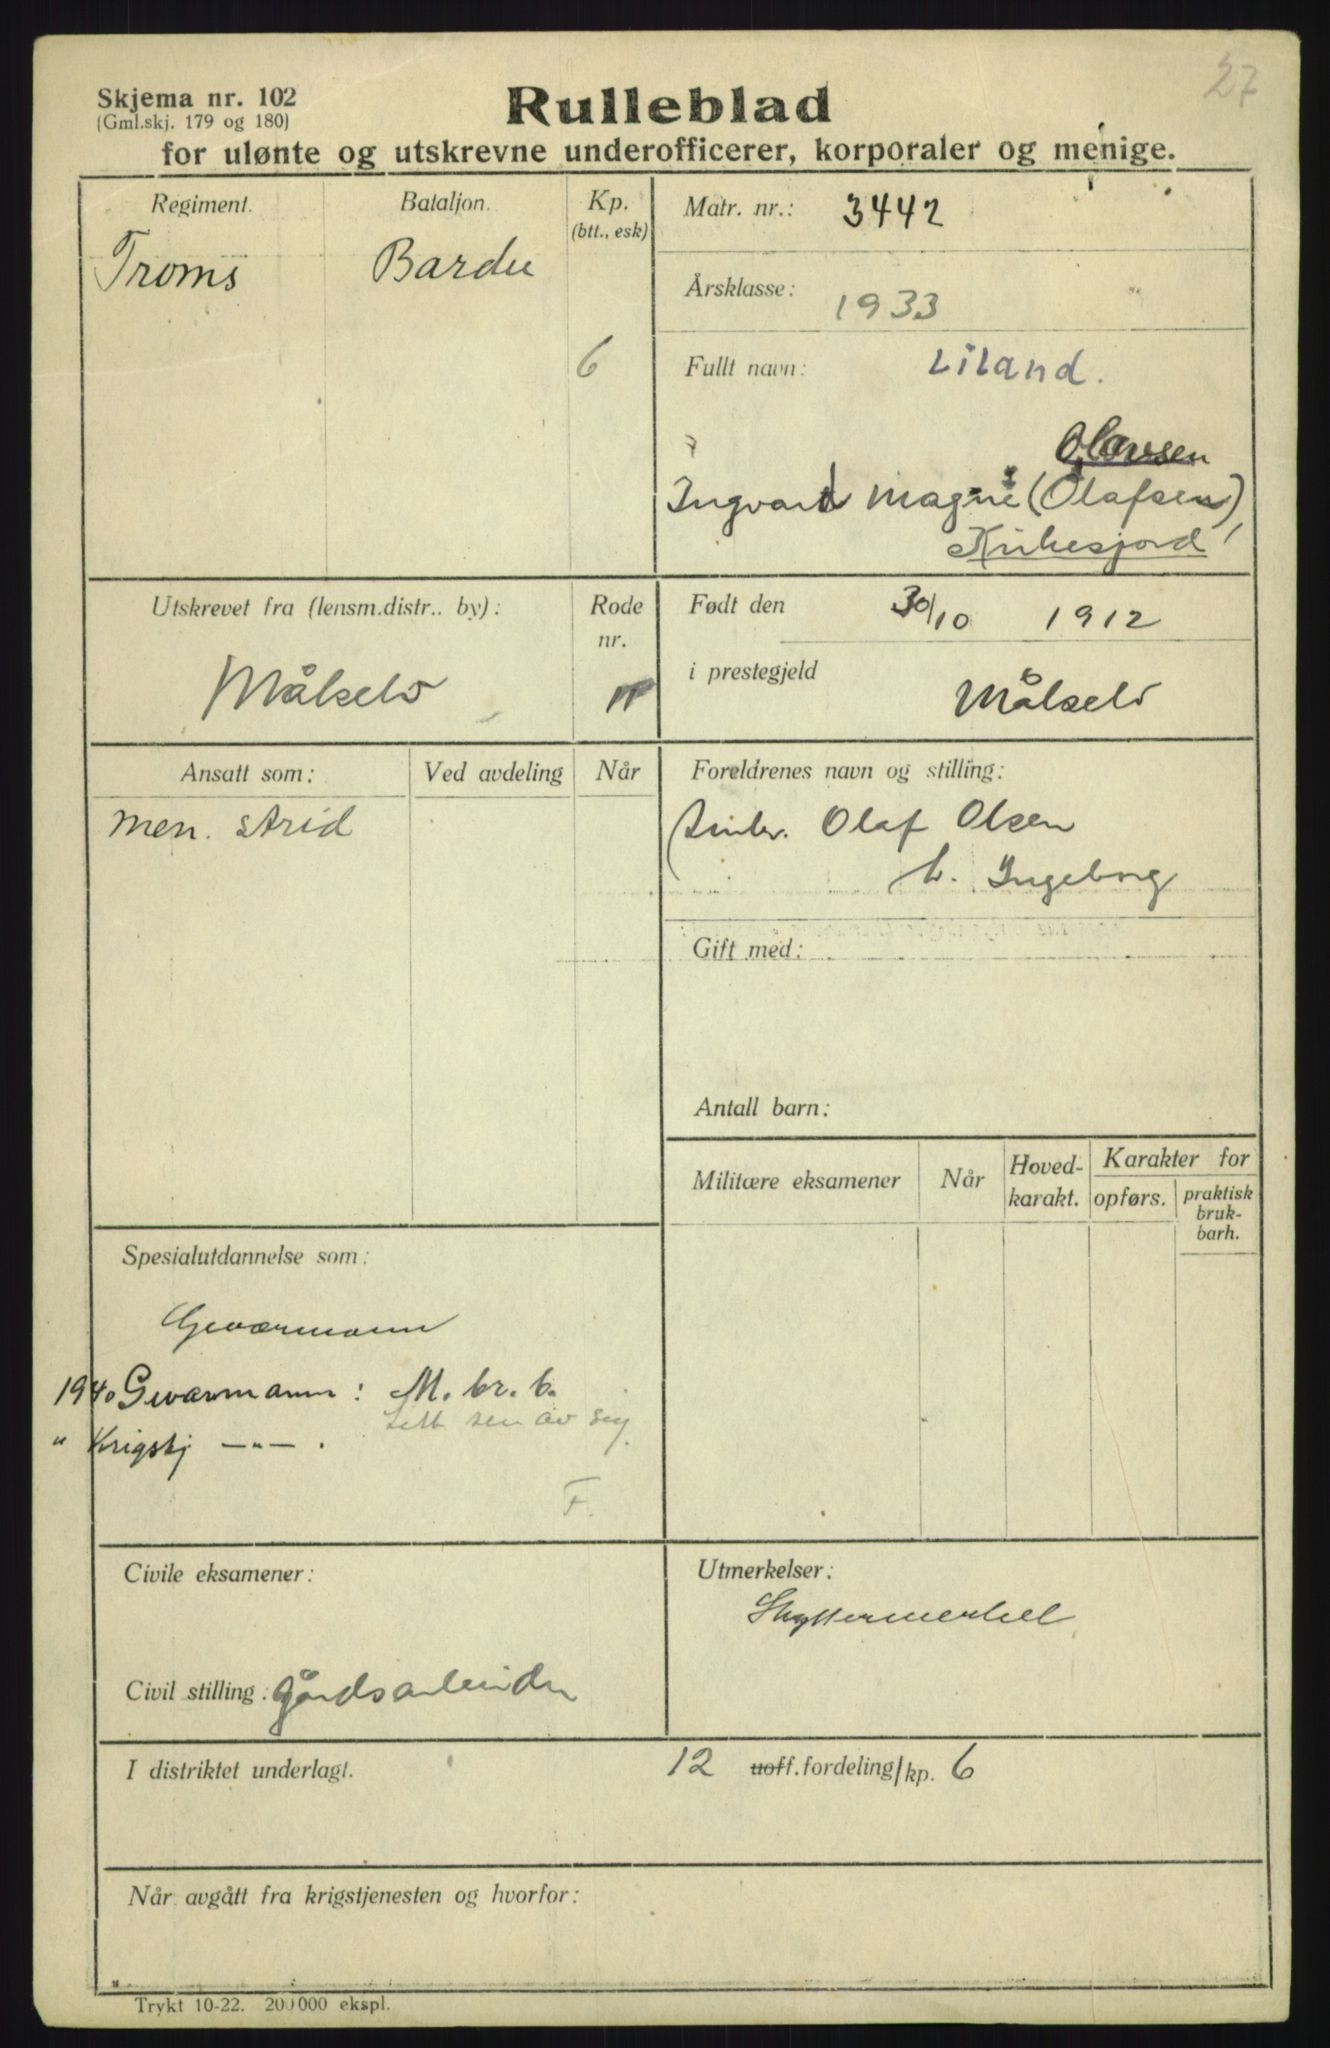 27
Skjema nr. 102
(Gml.skj. 179 og 180)
Rulleblad
for ulønte og utskrevne underofficerer, korporaler og menige.
Regiment.
Bataljon.
Kp.
(btt., esk)
Troms
Bardu
6
Matr. nr.: 3442
Årsklasse: 1933
Fullt navn: Liland.
Olavsen
Ingvard Magne (Olafsen)
Kirkesjord
Utskrevet fra (lensm.distr.. by):
Rode nr.
Målselv
Født den 30/10 1912
i prestegjeld
Målselv
Ansatt som:
Ved avdeling
Når
Men. strid
Foreldrenes navn og stilling:
Olaf Olsen
h. Ingeborg
Gift med:
Antall barn:
Militære eksamener
Når
Hoved-
karakt.
Karakter for
opførs.
praktisk
bruk-
barh.
Spesialutdannelse som:
Geværmann
1940 Geværmann: M. br. b.
Sett sen av sig.
" Krigskj —"— .
F.
Civile eksamener:
Civil stilling: gårdsarbeider
Utmerkelser:
Skyttermerket
I distriktet underlagt. 12 uoff.fordeling/kp. 6
Når avgått fra krigstjenesten og hvorfor:
Trykt 10-22. 200000 ekspl.